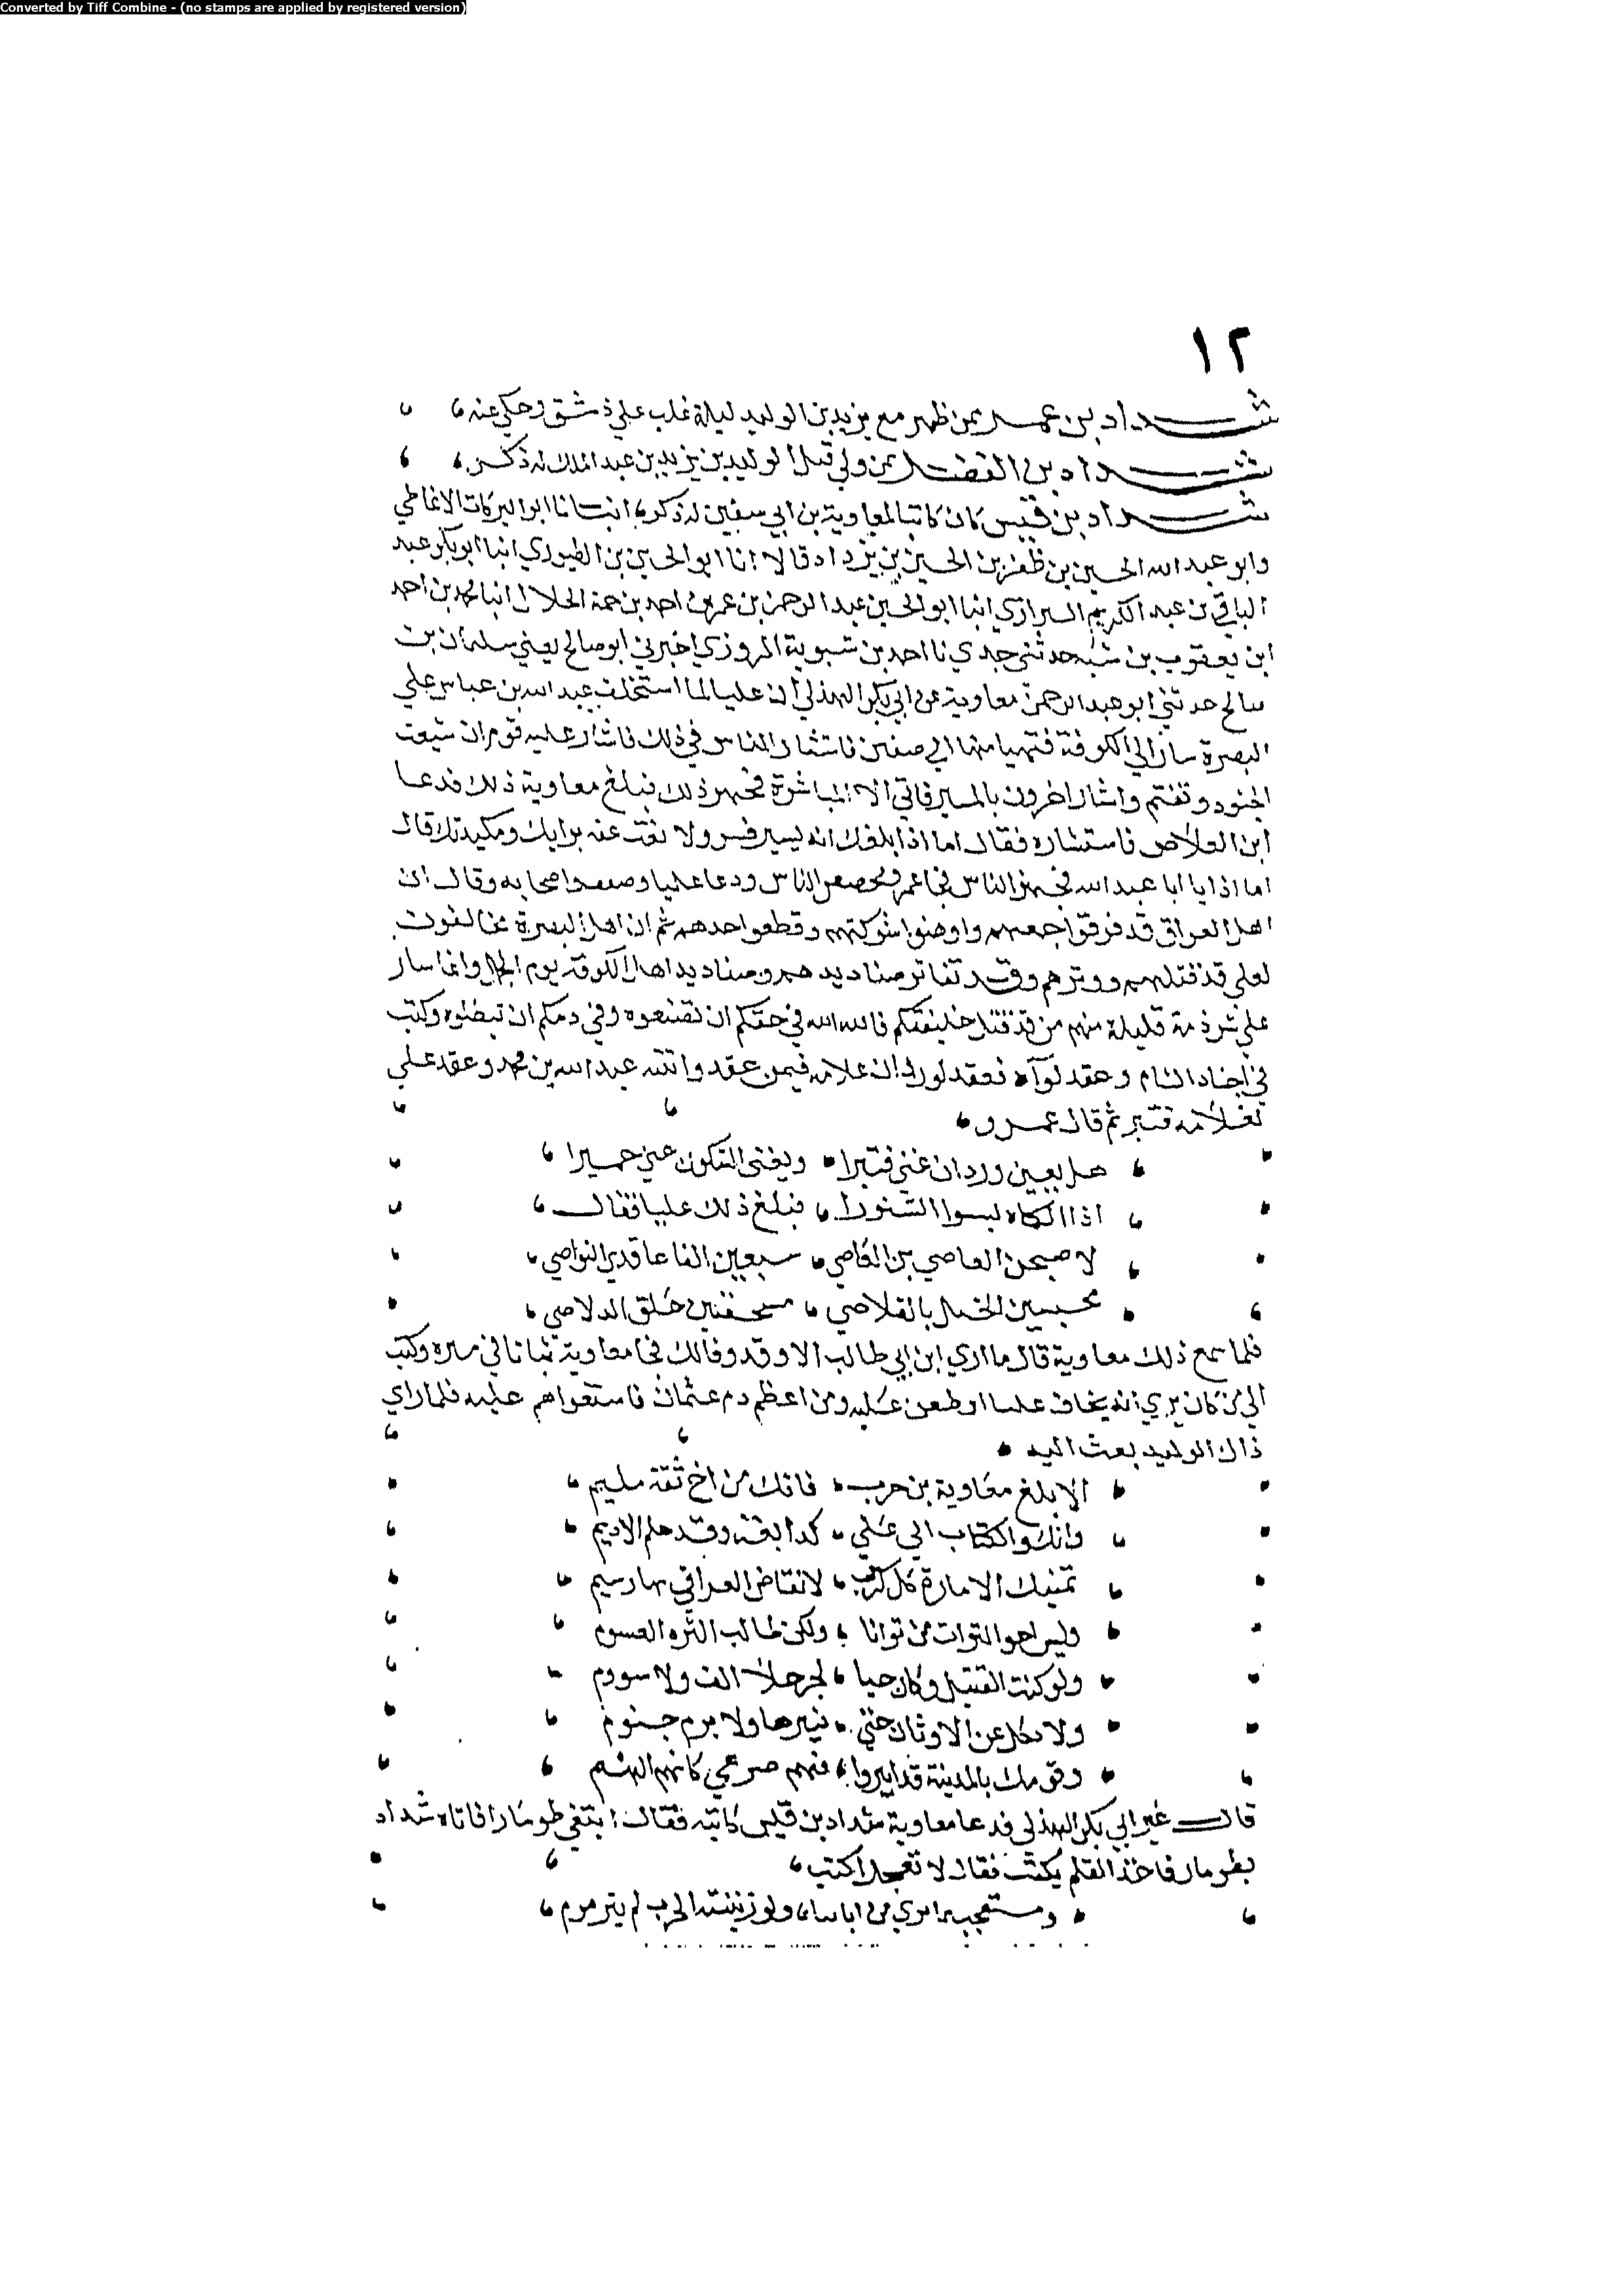 Converted by Tiff Combine - (no stamps are applied by registered version)
١٢
شداد بن عمر ممن ظهر مع يزيد بن الوليد ليلة غلب علي دمشق وحكي عنه
شداد بن الفضل ممن ولي قتل الوليد بن يزيد بن عبد الملك له ذكر
شداد بن قيس كان كاتبا لمعاوية بن ابي سفين له ذكر انبانا ابوا البركات الانماطي
وابو عبد الله الحسين بن ظفر بن الحسين بن يزداد قالا انا ابو الحسين بن الطيوري انبا ابو بكر عبد
الباقي بن عبد الكريم السيرازي انبا ابو الحسين عبد الرحمن بن عمر بن احمد بن حمة الخلال انبا محمد بن احمد
ابن يعقوب بن شيبه حدثني جدي نا احمد بن شبوية المروزي اخبرني ابو صالح يعني سلمان بن
صالح حدثني ابو عبد الرحمن معاوية عن ابي بكر الهذلي ان عليا لما استخلف عبد الله بن عباس علي
البصرة سار الي الكوفة فتهيا منها الي صفين فاستشار الناس في ذلك فاشار عليه قوم ان يبعث
الجنود وتقتم واشار اخرون بالمسير فاتي الا المباشرة فجهز ذلك فبلغ معاوية ذلك فدعا
ابن العلاص فاستشاره فقال اما اذا بلغك انه يسير فسر ولا تغب عنه برايك ومكيدتك قال
اما اذا يا ابا عبد الله فجهز الناس فجا عمرو فحصص الناس ودعا عليا وضعف اصحابه وقال ان
اهل العراق قد فرقوا جمعهم واوهنوا شوكتهم وقطعوا حدهم ثم ان اهل البصرة مخالفون
لعلي قد قتلهم ووترهم وقد تفاتر صناديدهم وصناديد اهل الكوفة يوم الجمل وانما سار
علي شرذمة قليلة منهم من قد قتل خليفتكم فالله الله في حقكم ان تضيعوه وفي دمكم ان تبطلوه وكتب
في اجناد الشام وعقد لوآه فعقد لوردان غلامه فيمن عقد وابنيه عبد الله بن محمد وعقد علي
لغلامه قنبر ثم قال عمرو
هل يغنين وردان عني قنبرا ويغني السكون عني حميرا
اذا الكماه لبسوا السنورا فبلغ ذلك عليا فقال
لا صبحن العاصي بن العاصي سبعين الفا عاقدي النواصي
مجنبين الخيل بالقلاصي مستحقبين حلق الدلاصي
فلما سمع ذلك معاوية قال ما اري ابن ابي طالب الا وقد وفا لك فجا معاوية يتانا في مسيره وكتب
الي من كان يري انه يخاف عليا او طعن عليه ومن اعظم دم عثمان فاستعواهم عليه فلما راي
ذاك الوليد بعث اليه
الا بلغ معاوية بن حرب فانك من اخ ثقة مليم
وانك والكتاب الي علي كدابغة وقد حلم الاديم
تمنيك الامارة كل ركب لانقاض العراق بها رسيم
وليس اخو الترات من توانا ولكن طالب التره الغسوم
ولو كنت القتيل وكان حيا لجرد لا الف ولا سووم
ولا نكل عن الاوتار حتي يبيرها ولا برم جثوم
وقومك بالمدينة قد ابيروا فهم صرعي كانهم الهشيم
قال غير ابي بكر الهذلي فدعا معاوية شداد بن قيس كاتبه فقال ابتغي طومارا فاتاه شداد
بطومار فاخذ القلم يكتب فقال لا تعجل اكتب
ومستعجب مما يري من اناتنا ولو زبنته الحرب لم يترمرم